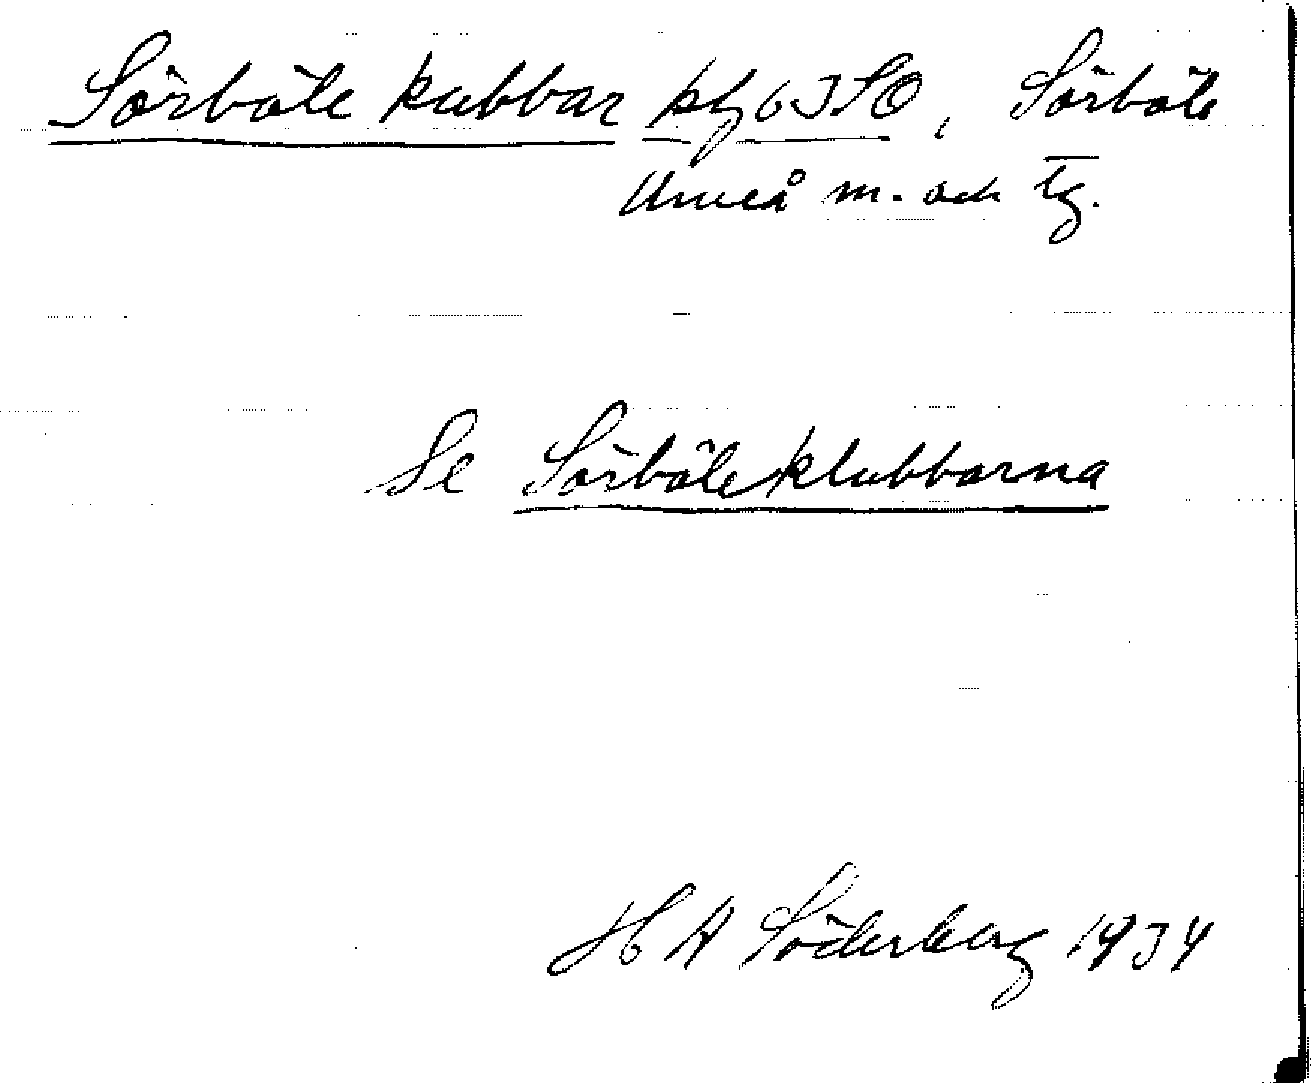 Sörböle kubbar kbl 63 SO, Sörböle
Umeå m. och tg.
Se Sörböleklubbarna
H A Söderberg 1934